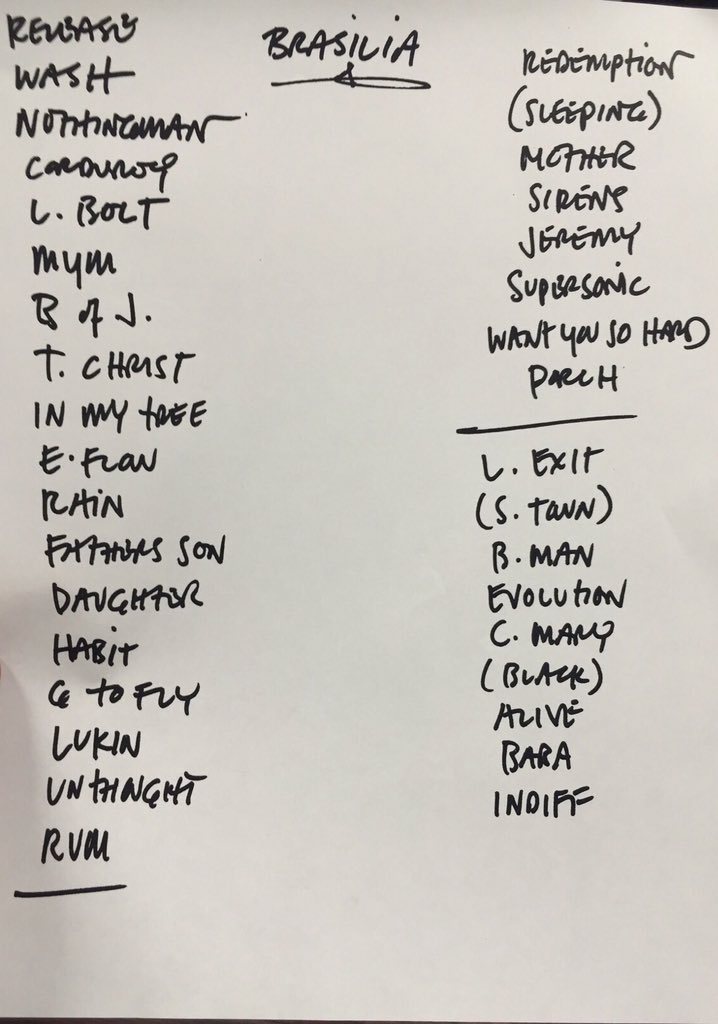 BRASILIA
RELEASE
WASH
NOTHINGMAN
CORDUROY
L. BOLT
MYM
B of J.
T. CHRIST
IN MY TREE
E. FLOW
RAIN
FATHERS SON
DAUGHTER
HABIT
G TO FLY
LUKIN
UNTHINGHT
RVM
REDEMPTION
(SLEEPING)
MOTHER
SIRENS
JEREMY
SUPERSONIC
WANT YOU SO HARD
PORCH
L. EXIT
(S. TOWN)
B. MAN
EVOLUTION
C. MARY
(BLACK)
ALIVE
BABA
INDIFF